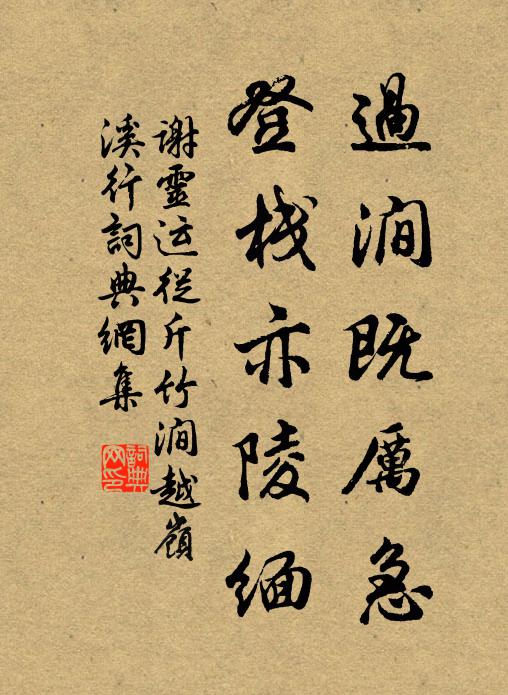 過澗既厲急
登栈亦陵緬
謝靈运從斤竹澗越嶺
溪行詞典網集
詞典
网印